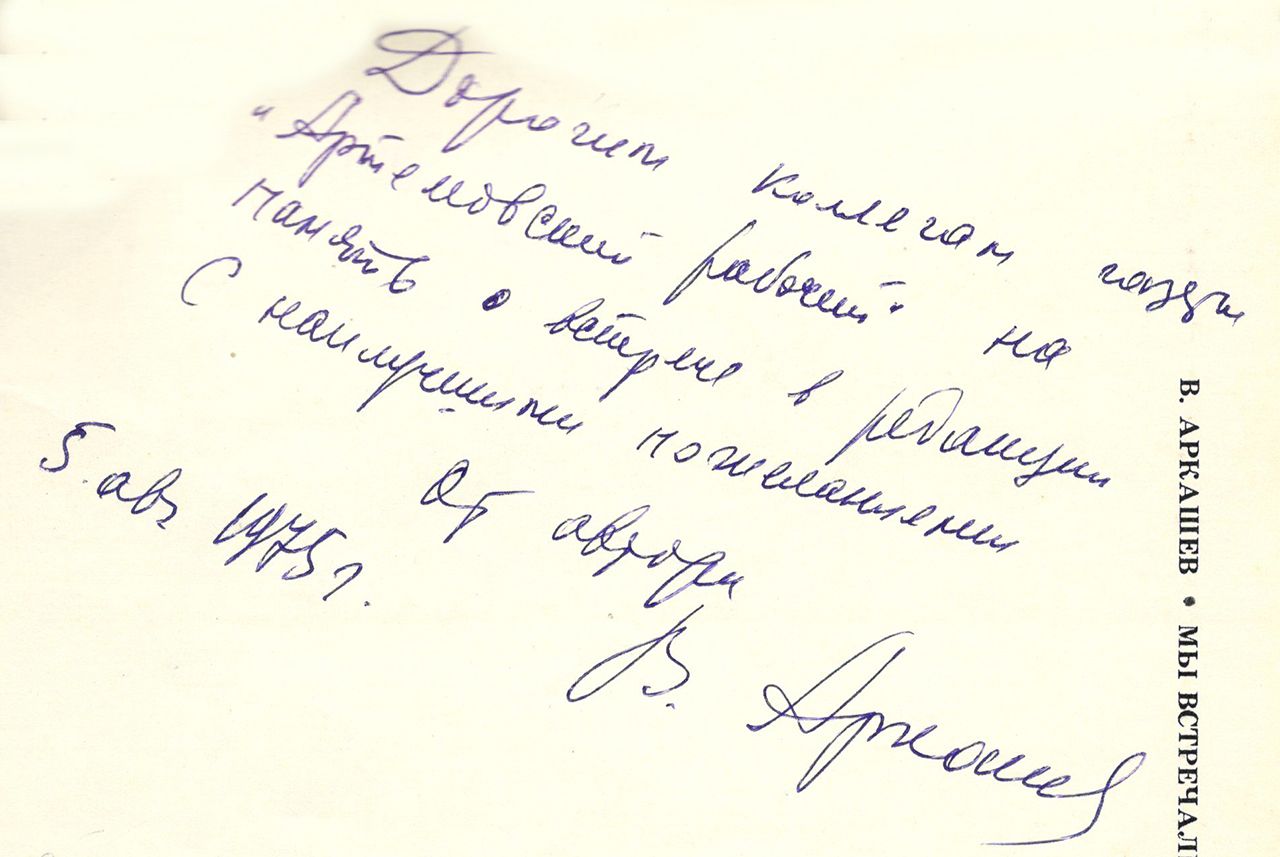 Дорогим коллегам газеты
"Артемовский рабочий" на
память о встрече в редакции
С наилучшими пожеланиями
От автора
5. авг 1975 г.
В. Аркашев
В. АРКАШЕВ • МЫ ВСТРЕЧАЛИ